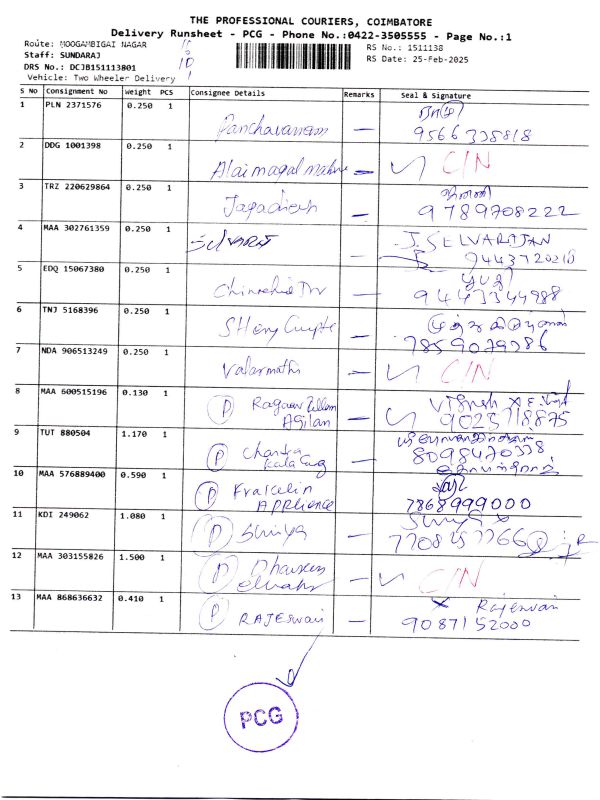 THE PROFESSIONAL COURIERS, COIMBATORE
Delivery Runsheet - PCG - Phone No.:0422-3505555 - Page No.:1
Route: MOOGAMBIGAI NAGAR
RS No.: 1511138
Staff: SUNDARAJ
RS Date: 25-Feb-2025
DRS No.: DCJB151113801 10
Vehicle: Two Wheeler Delivery
S No Consignment No Weight PCS Consignee Details Remarks Seal & Signature
1 PLN 2371576 0.250 1
Panchavarnam — 9566338818
2 DDG 1001398 0.250 1
Alaimagal — C/N
3 TRZ 220629864 0.250 1
Jagadiesh — 9789708222
4 MAA 302761359 0.250 1
Selvaraj — J. SELVARAJAN
5 EDQ 15067380 0.250 1
— 9443344988
6 TNJ 5168396 0.250 1
— 7859079386
7 NDA 906513249 0.250 1
Valarmathi — C/N
8 MAA 600515196 0.130 1
P Agilan — 9025118875
9 TUT 880504 1.170 1
P Chandra — 8098470338
10 MAA 576889400 0.590 1
P Appliance — 7868999000
11 KDI 249062 1.080 1
P Suriya —
12 MAA 303155826 1.500 1
P — C/N
13 MAA 868636632 0.410 1
P RAJESWARI — x Rajeswari
9087152000
PCG